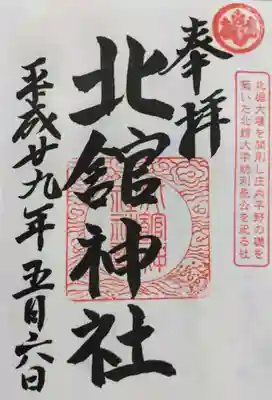 奉拝
北楯大堰を開削し庄内平野の礎を
築いた北楯大学助利長公を祀る社
北舘神社
平成廿九年五月六日